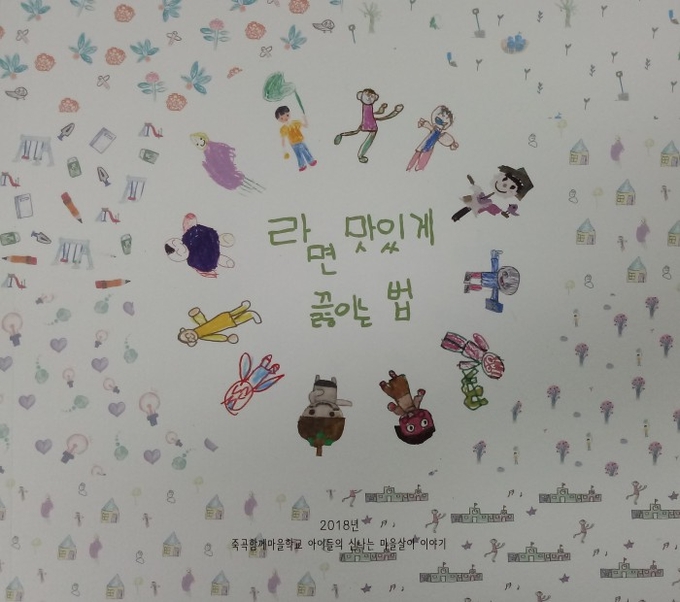 라면 맛있게
끓이는 법
2018년
죽곡함께마을학교 아이들의 신나는 마을살이 이야기